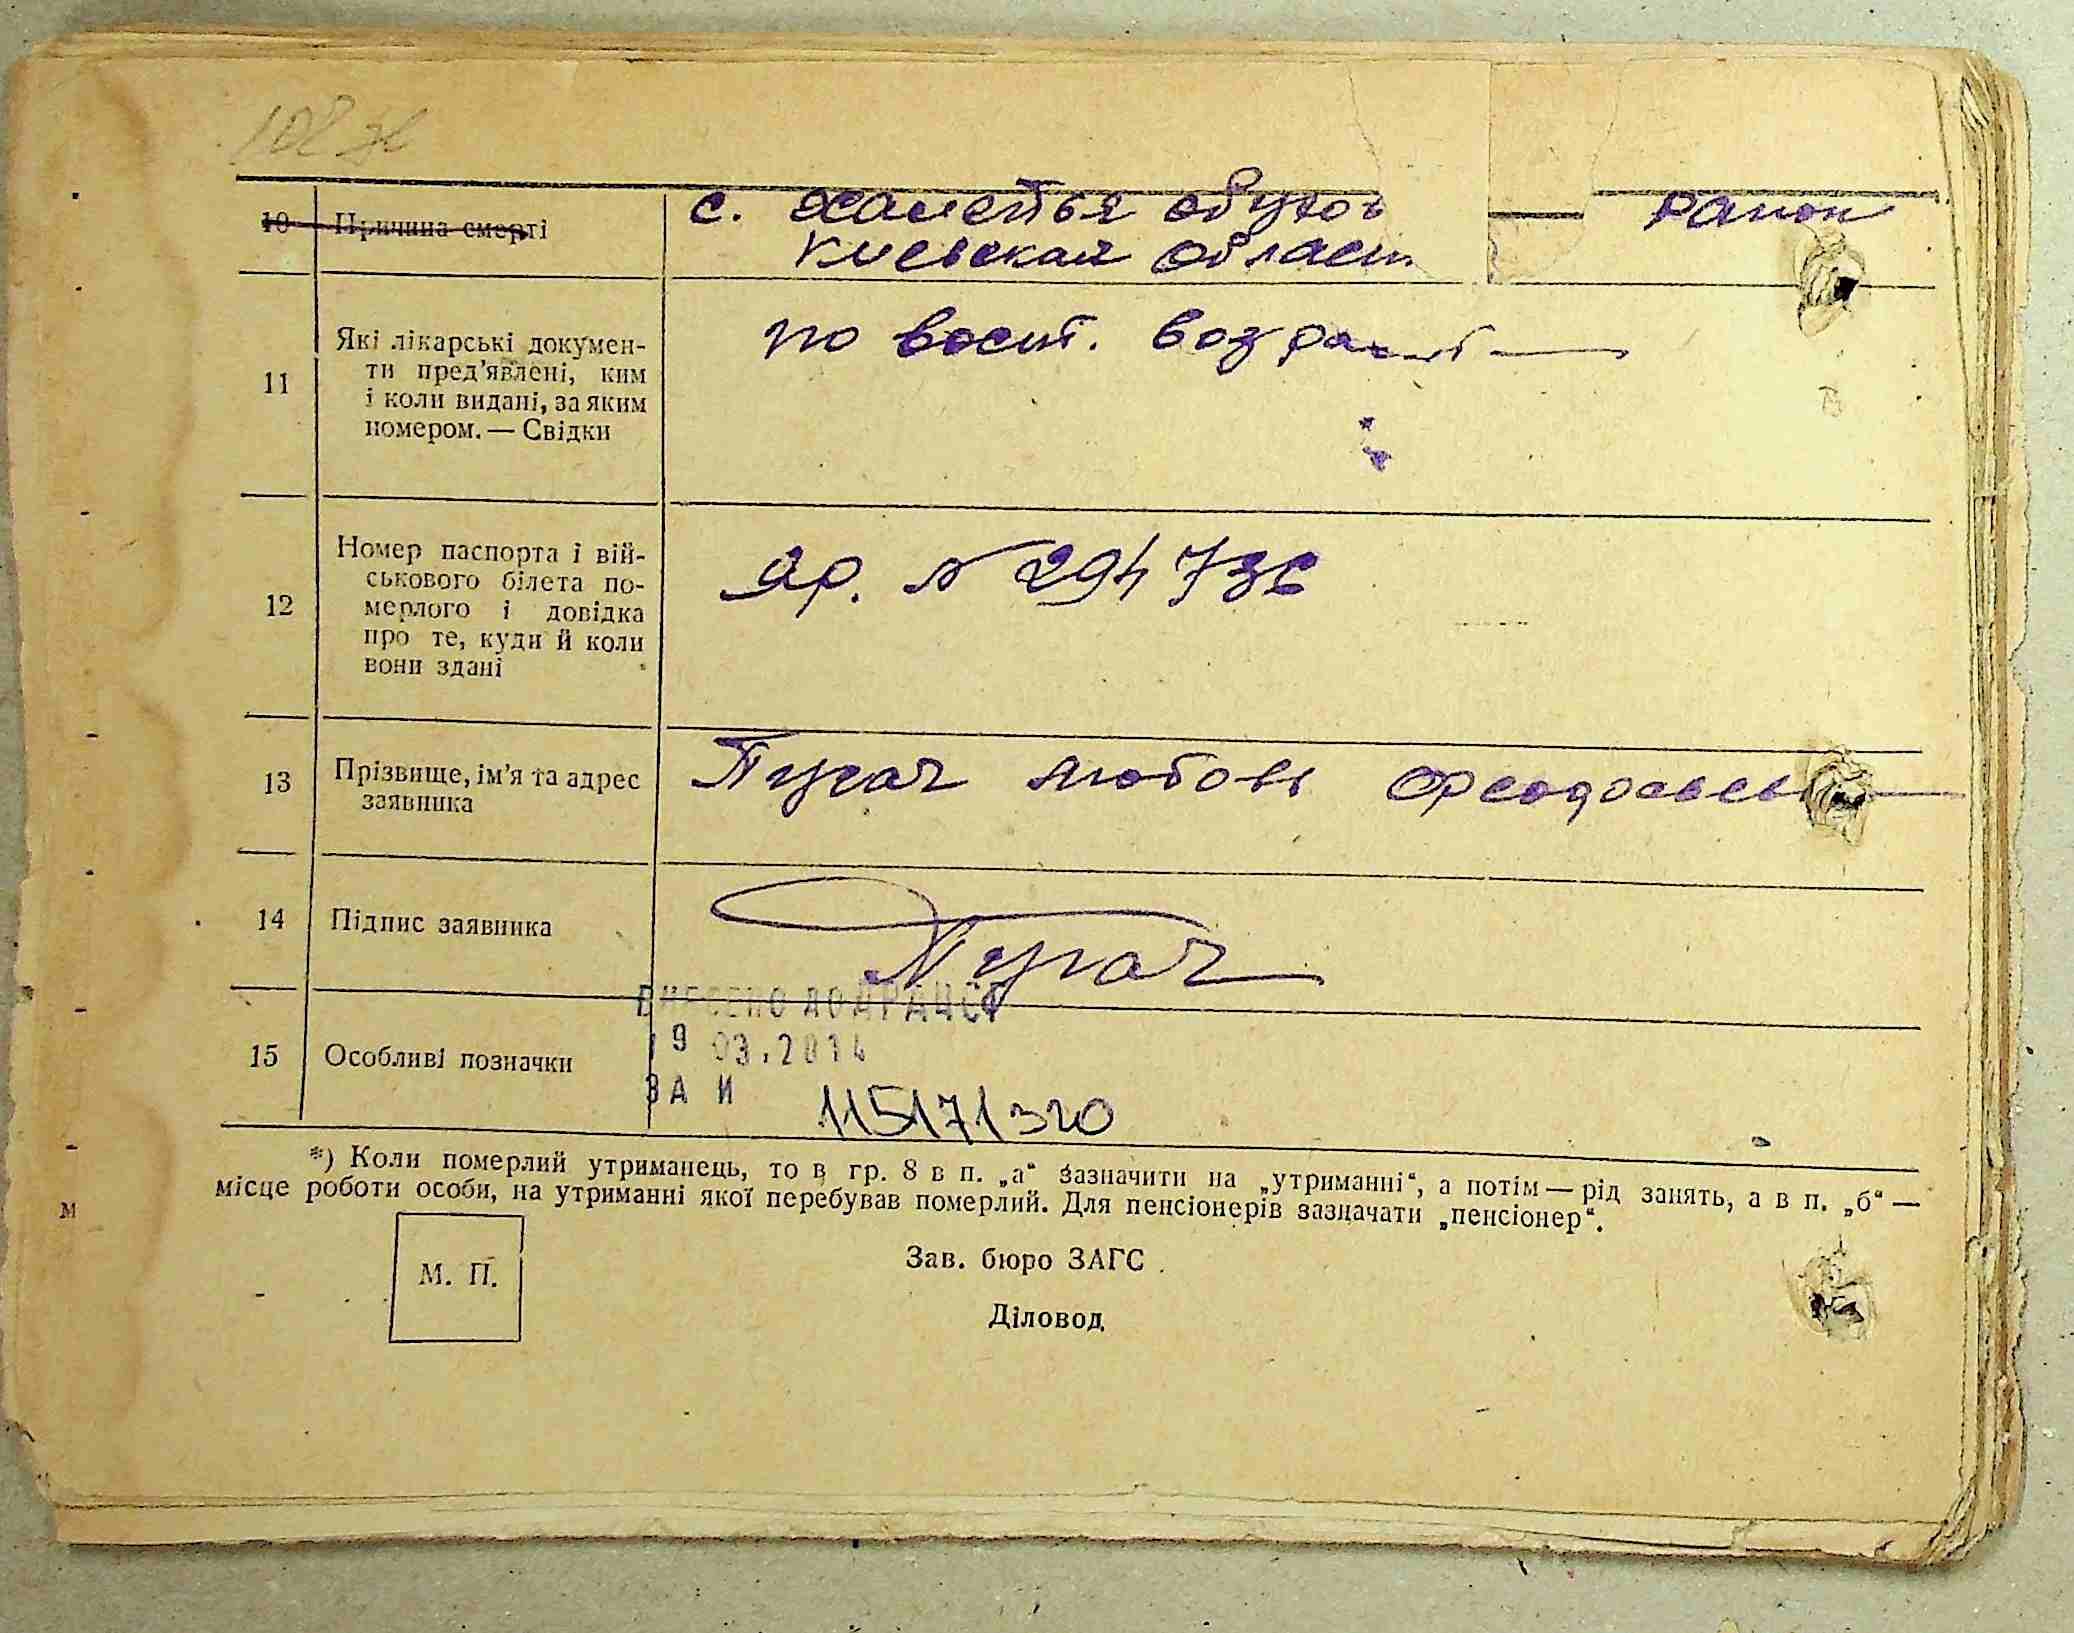 108 ж
10 Причина смерті
с. Халепья обухов район
Киевская област
11 Які лікарські докумен-
ти пред'явлені, ким
і коли видані, за яким
номером. — Свідки
по восст. возраст
12 Номер паспорта і вій-
ськового білета по-
мерлого і довідка
про те, куди й коли
вони здані
№ 294736
13 Прізвище, ім'я та адрес
заявника
Пугач Любовь Феодосьев
14 Підпис заявника
Пугач
15 Особливі позначки
ВНЕСЕНО ДО ДРАЦСГ
19 03.2014
ЗА И
115171320
*) Коли померлий утриманець, то в гр. 8 в п. „а“ зазначити на „утриманні“, а потім — рід занять, а в п. „б“ —
місце роботи особи, на утриманні якої перебував померлий. Для пенсіонерів зазначати „пенсіонер“.
М. П.
Зав. бюро ЗАГС
Діловод
м